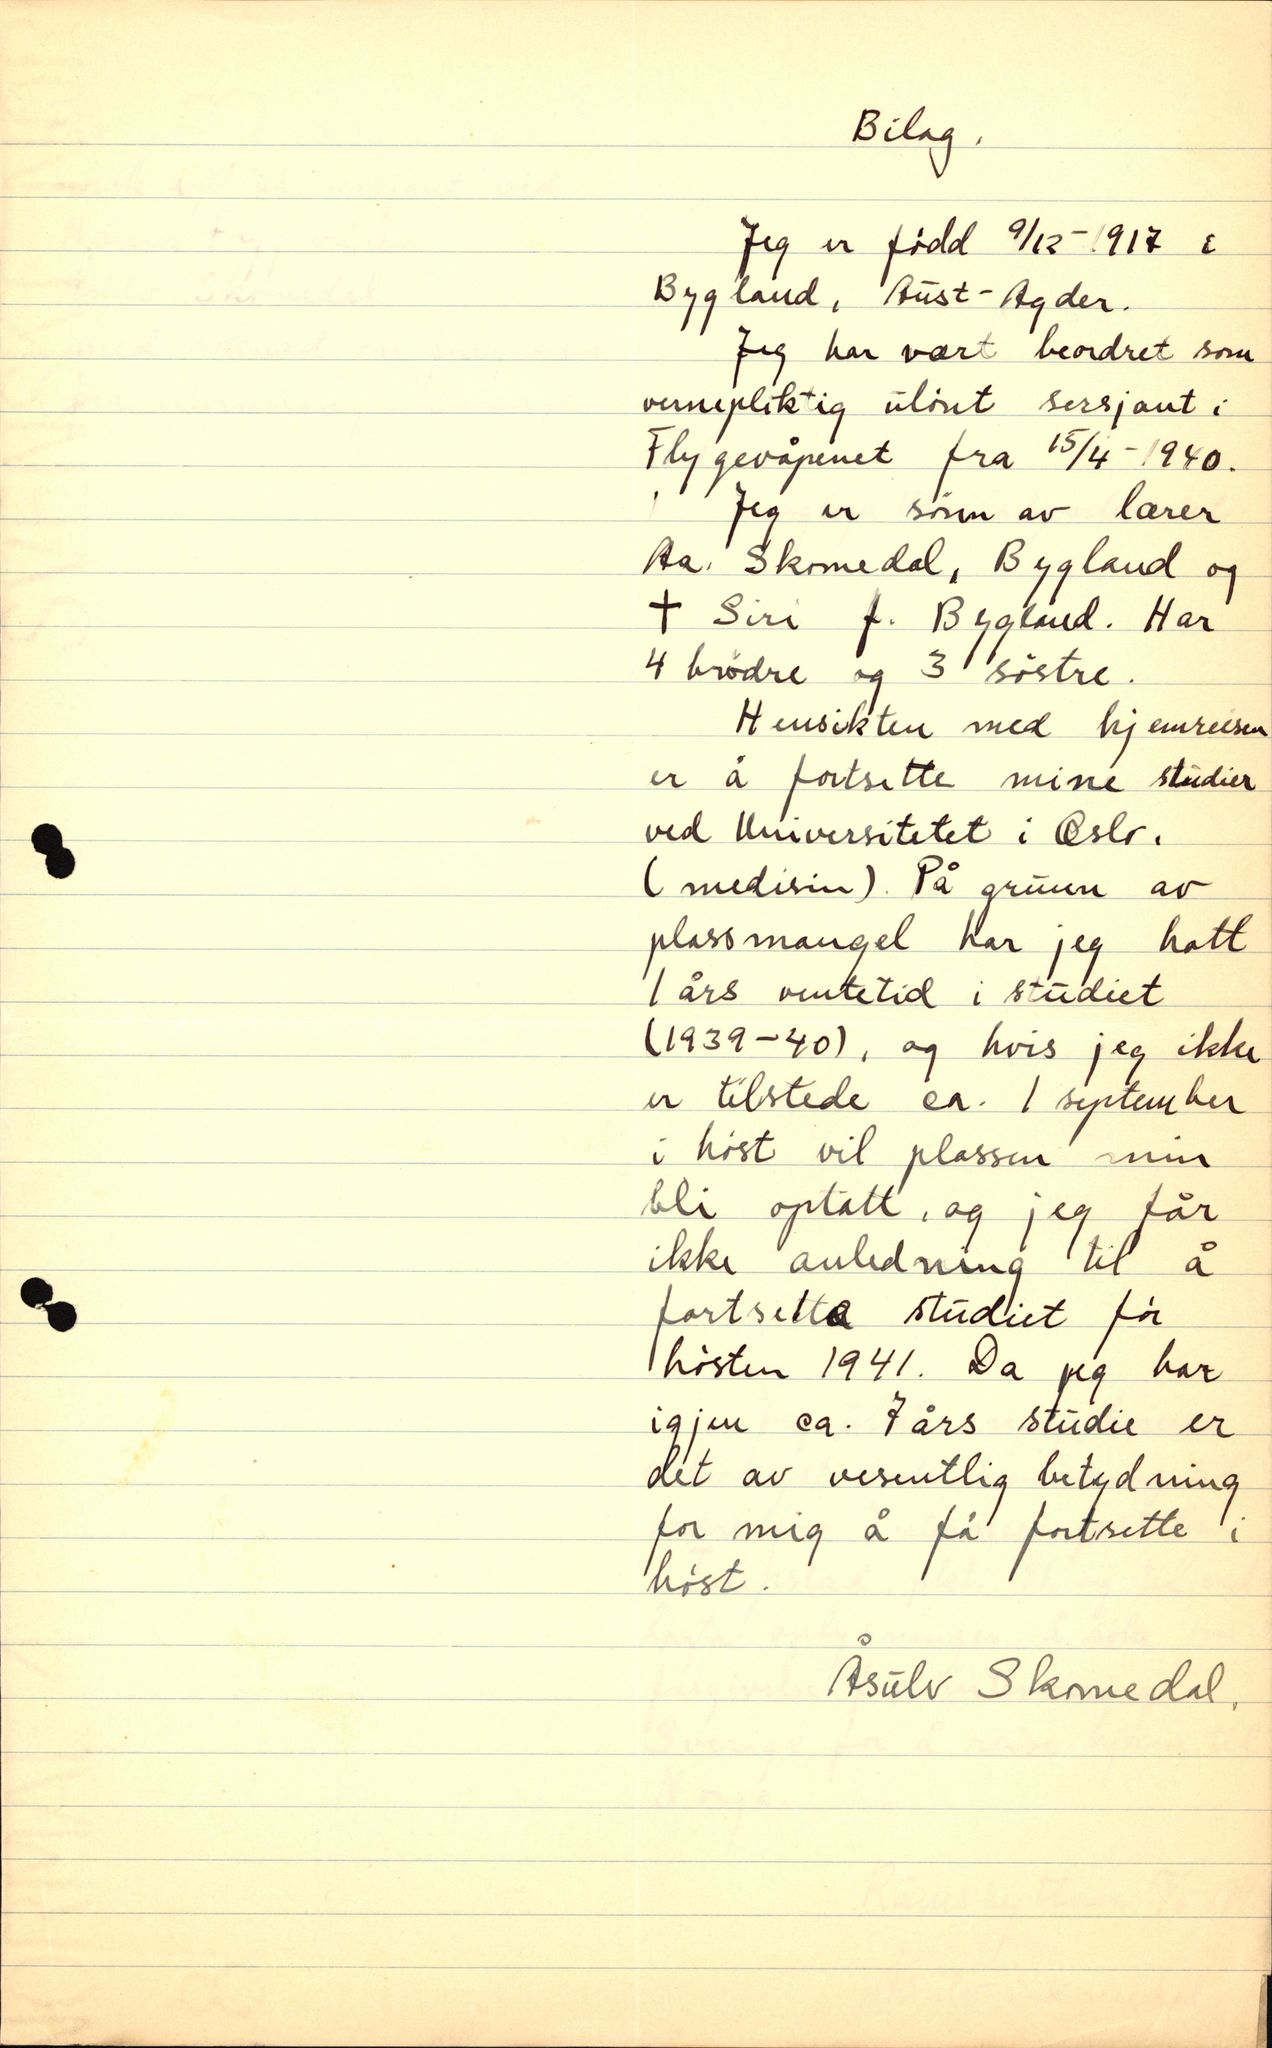 Bilag.
Jeg er född 9/12-1917 i
Bygland, Aust-Agder.
Jeg har vært beordret som
vernepliktig ulönt sersjant i
Flygevåpenet fra 15/4-1940.
Jeg er sönn av lærer
Aa. Skomedal, Bygland og
† Siri f. Bygland. Har
4 brödre og 3 söstre.
Hensikten med hjemreisen
er å fortsette mine studier
ved Universitetet i Oslo.
(medisin). På grunn av
plassmangel har jeg hatt
1 års ventetid i studiet
(1939-40), og hvis jeg ikke
er tilstede ca. 1 september
i höst vil plassen min
bli optatt, og jeg får
ikke anledning til å
fortsette studiet för
hösten 1941. Da jeg har
igjen ca. 7 års studie er
det av vesentlig betydning
for mig å få fortsette i
höst.
Åsulv Skomedal.